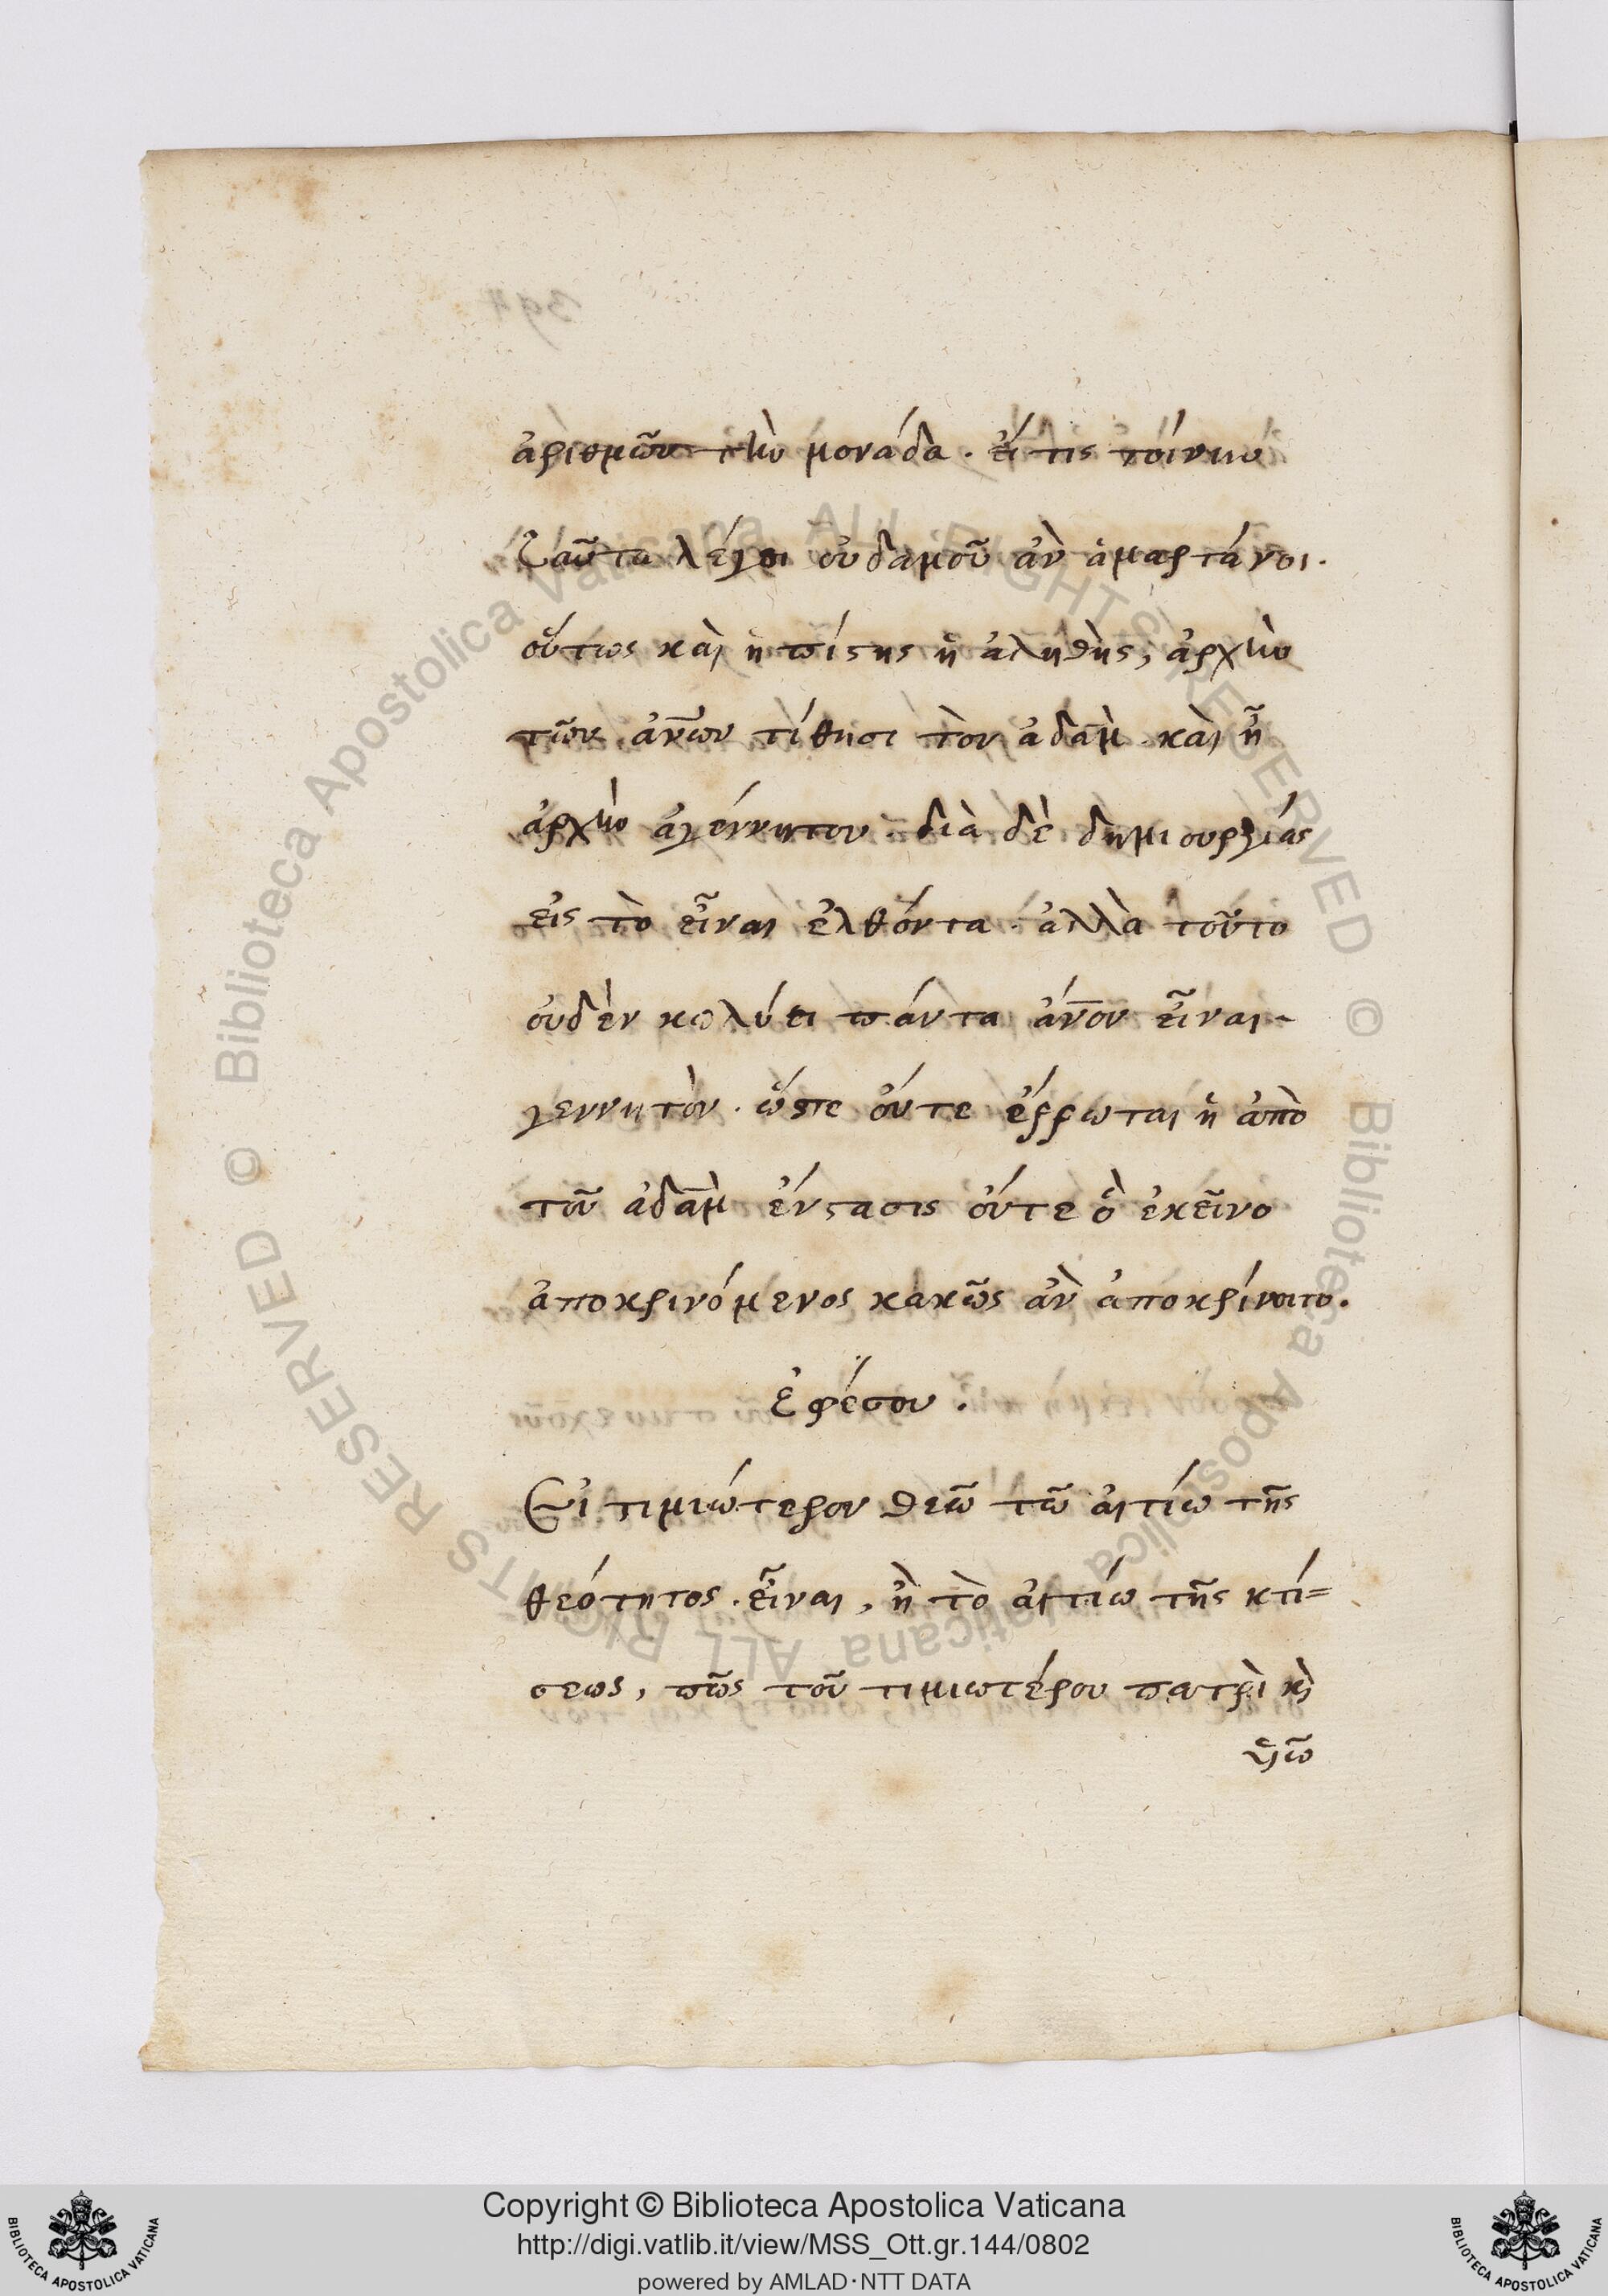 ἀριθμῶν τὴν μονάδα. εἴ τις τοίνυν
ταῦτα λέγοι οὐδαμοῦ ἂν ἁμαρτάνοι.
οὕτως καὶ ἡ πίστις ἡ ἀληθὴς, ἀρχὴν
τῶν ἀν̅ων τίθησι τὸν ἀδὰμ. καὶ ἦ
ἀρχὴν ἀγέννητον. διὰ δὲ δημιουργίας
εἰς τὸ εἶναι ἐλθόντα. ἀλλὰ τοῦτο
οὐδὲν κωλύει πάντα ἄν̅ον εἶναι
γεννητὸν. ὥστε οὔτε ἔρρωται ἡ ἀπὸ
τοῦ ἀδὰμ ἔνστασις οὔτε ὁ ἐκεῖνο
ἀποκρινόμενος κακῶς ἂν ἀποκρίνοιτο.
Ἐφέσου.
Εἰ τιμιώτερον θεῶ τῶ αἰτίω τῆς
θεότητος εἶναι, ἢ τὸ αἰτίω τῆς κτί=
σεως, πῶς τοῦ τιμιωτέρου πατρὶ κὶ
ὑιῶ
Copyright © Biblioteca Apostolica Vaticana
http://digi.vatlib.it/view/MSS_Ott.gr.144/0802
powered by AMLAD·NTT DATA
BIBLIOTECA APOSTOLICA VATICANA
BIBLIOTECA APOSTOLICA VATICANA
© Biblioteca Apostolica Vaticana ALL RIGHTS RESERVED
© Biblioteca Apostolica Vaticana ALL RIGHTS RESERVED